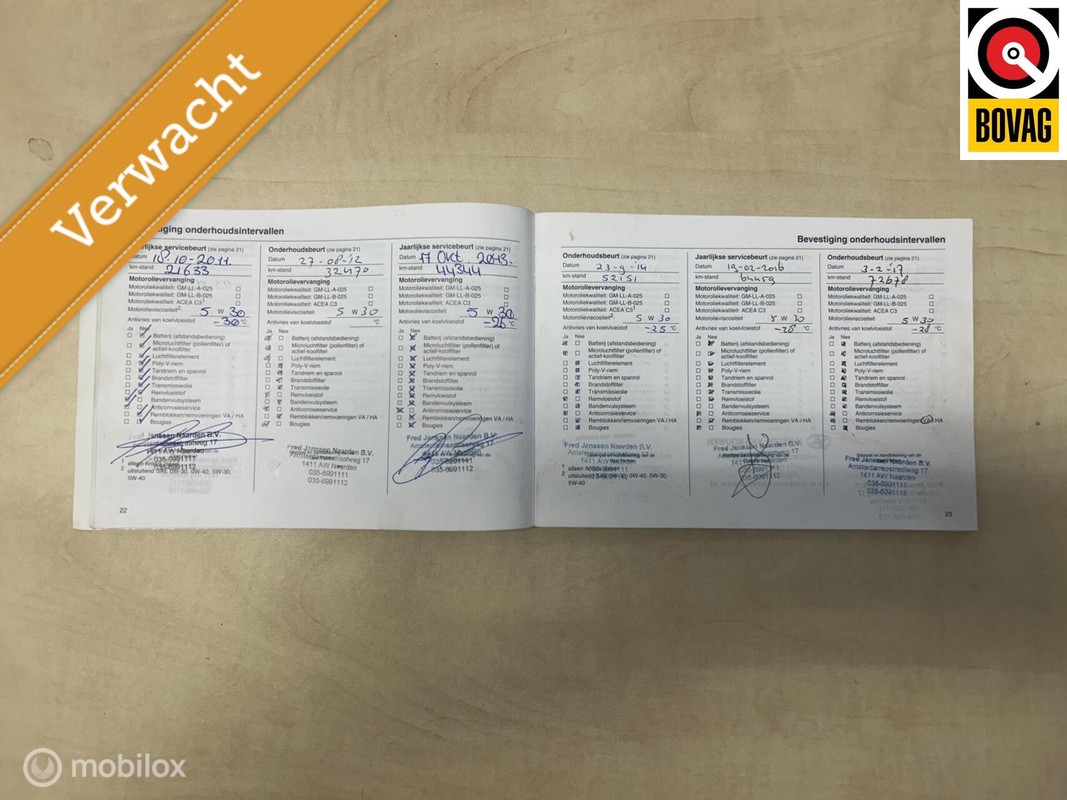 Verwacht
BOVAG
Bevestiging onderhoudsintervallen
Jaarlijkse servicebeurt (zie pagina 21)
Datum 18-10-2011
km-stand 21633
Motorolievervanging
Motoroliekwaliteit: GM-LL-A-025
Motoroliekwaliteit: GM-LL-B-025
Motoroliekwaliteit: ACEA C3
Motorolieviscositeit 5 W 30
Antivries van koelvloeistof -30 °C
Ja Nee
Batterij (afstandsbediening)
Microluchtfilter (pollenfilter) of
actief-koolfilter
Luchtfilterelement
Poly-V-riem
Tandriem en spanrol
Brandstoffilter
Transmissieolie
Remvloeistof
Bandenvulsysteem
Anticorrosieservice
Remblokken/remvoeringen VA / HA
Bougies
Fred Janssen Naarden B.V.
1411 AW Naarden
035-6991111
035-6991112
Onderhoudsbeurt (zie pagina 21)
Datum 27-08-12
km-stand 32470
Motorolievervanging
Motoroliekwaliteit: GM-LL-A-025
Motoroliekwaliteit: GM-LL-B-025
Motoroliekwaliteit: ACEA C3
Motorolieviscositeit 5 W 30
Antivries van koelvloeistof °C
Ja Nee
Batterij (afstandsbediening)
Microluchtfilter (pollenfilter) of
actief-koolfilter
Luchtfilterelement
Poly-V-riem
Tandriem en spanrol
Brandstoffilter
Transmissieolie
Remvloeistof
Bandenvulsysteem
Anticorrosieservice
Remblokken/remvoeringen VA / HA
Bougies
Fred Janssen Naarden B.V.
1411 AW Naarden
035-6991111
035-6991112
Jaarlijkse servicebeurt (zie pagina 21)
Datum 17 Okt. 2013.
km-stand 44344
Motorolievervanging
Motoroliekwaliteit: GM-LL-A-025
Motoroliekwaliteit: GM-LL-B-025
Motoroliekwaliteit: ACEA C3
Motorolieviscositeit 5 W 30
Antivries van koelvloeistof -26 °C
Ja Nee
Batterij (afstandsbediening)
Microluchtfilter (pollenfilter) of
actief-koolfilter
Luchtfilterelement
Poly-V-riem
Tandriem en spanrol
Brandstoffilter
Transmissieolie
Remvloeistof
Bandenvulsysteem
Anticorrosieservice
Remblokken/remvoeringen VA / HA
Bougies
Fred Janssen Naarden B.V.
Amsterdamsestraatweg 17
1411 AW Naarden
035-6991111
035-6991112
22
Bevestiging onderhoudsintervallen
Onderhoudsbeurt (zie pagina 21)
Datum 23-9-14
km-stand 52151
Motorolievervanging
Motoroliekwaliteit: GM-LL-A-025
Motoroliekwaliteit: GM-LL-B-025
Motoroliekwaliteit: ACEA C3
Motorolieviscositeit 5 W 30
Antivries van koelvloeistof -25 °C
Ja Nee
Batterij (afstandsbediening)
Microluchtfilter (pollenfilter) of
actief-koolfilter
Luchtfilterelement
Poly-V-riem
Tandriem en spanrol
Brandstoffilter
Transmissieolie
Remvloeistof
Bandenvulsysteem
Anticorrosieservice
Remblokken/remvoeringen VA / HA
Bougies
Fred Janssen Naarden B.V.
Amsterdamsestraatweg 17
1411 AW Naarden
035-6991112
Jaarlijkse servicebeurt (zie pagina 21)
Datum 19-02-2016
km-stand 64459
Motorolievervanging
Motoroliekwaliteit: GM-LL-A-025
Motoroliekwaliteit: GM-LL-B-025
Motoroliekwaliteit: ACEA C3
Motorolieviscositeit 5 W 30
Antivries van koelvloeistof -28 °C
Ja Nee
Batterij (afstandsbediening)
Microluchtfilter (pollenfilter) of
actief-koolfilter
Luchtfilterelement
Poly-V-riem
Tandriem en spanrol
Brandstoffilter
Transmissieolie
Remvloeistof
Bandenvulsysteem
Anticorrosieservice
Remblokken/remvoeringen VA / HA
Bougies
1411 AW Naarden
035-6991111
035-6991112
Onderhoudsbeurt (zie pagina 21)
Datum 3-2-'17
km-stand 72678
Motorolievervanging
Motoroliekwaliteit: GM-LL-A-025
Motoroliekwaliteit: GM-LL-B-025
Motoroliekwaliteit: ACEA C3
Motorolieviscositeit 5 W 30
Antivries van koelvloeistof -28 °C
Ja Nee
Batterij (afstandsbediening)
Microluchtfilter (pollenfilter) of
actief-koolfilter
Luchtfilterelement
Poly-V-riem
Tandriem en spanrol
Brandstoffilter
Transmissieolie
Remvloeistof
Bandenvulsysteem
Anticorrosieservice
Remblokken/remvoeringen VA / HA
Bougies
Fred Janssen Naarden B.V.
Amsterdamsestraatweg 17
1411 AW Naarden
035-6991111
035-6991112
23
mobilox